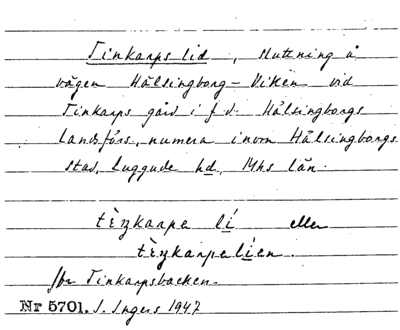 Tinkarps lid, sluttning å
vägen Hälsingborg - Viken vid
Tinkarps gård i f.d. Hälsingborgs
landsförs., numera inom Hälsingborgs
stad, Luggude hd, Mhs län.
tèŋkarpa lí eller
tèŋkarpalíen.
Jfr Tinkarpsbacken.
Nr 5701. I. Ingers 1947